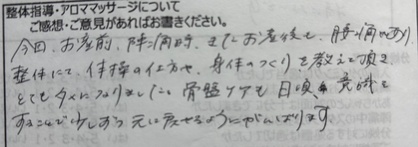 整体指導・アロママッサージについて
ご感想・ご意見があればお書きください。
今回、お産前、陣痛時、またお産後も、腰痛があり
整体にて、体操の仕方や、身体のつくりを教えて頂き
とてもタメになりました。骨盤ケアも日頃、意識を
することで少しずつ元に戻せるようにがんばります。